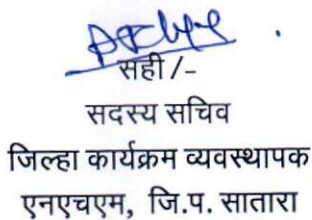 सही/-
सदस्य सचिव
जिल्हा कार्यक्रम व्यवस्थापक
एनएचएम, जि.प. सातारा